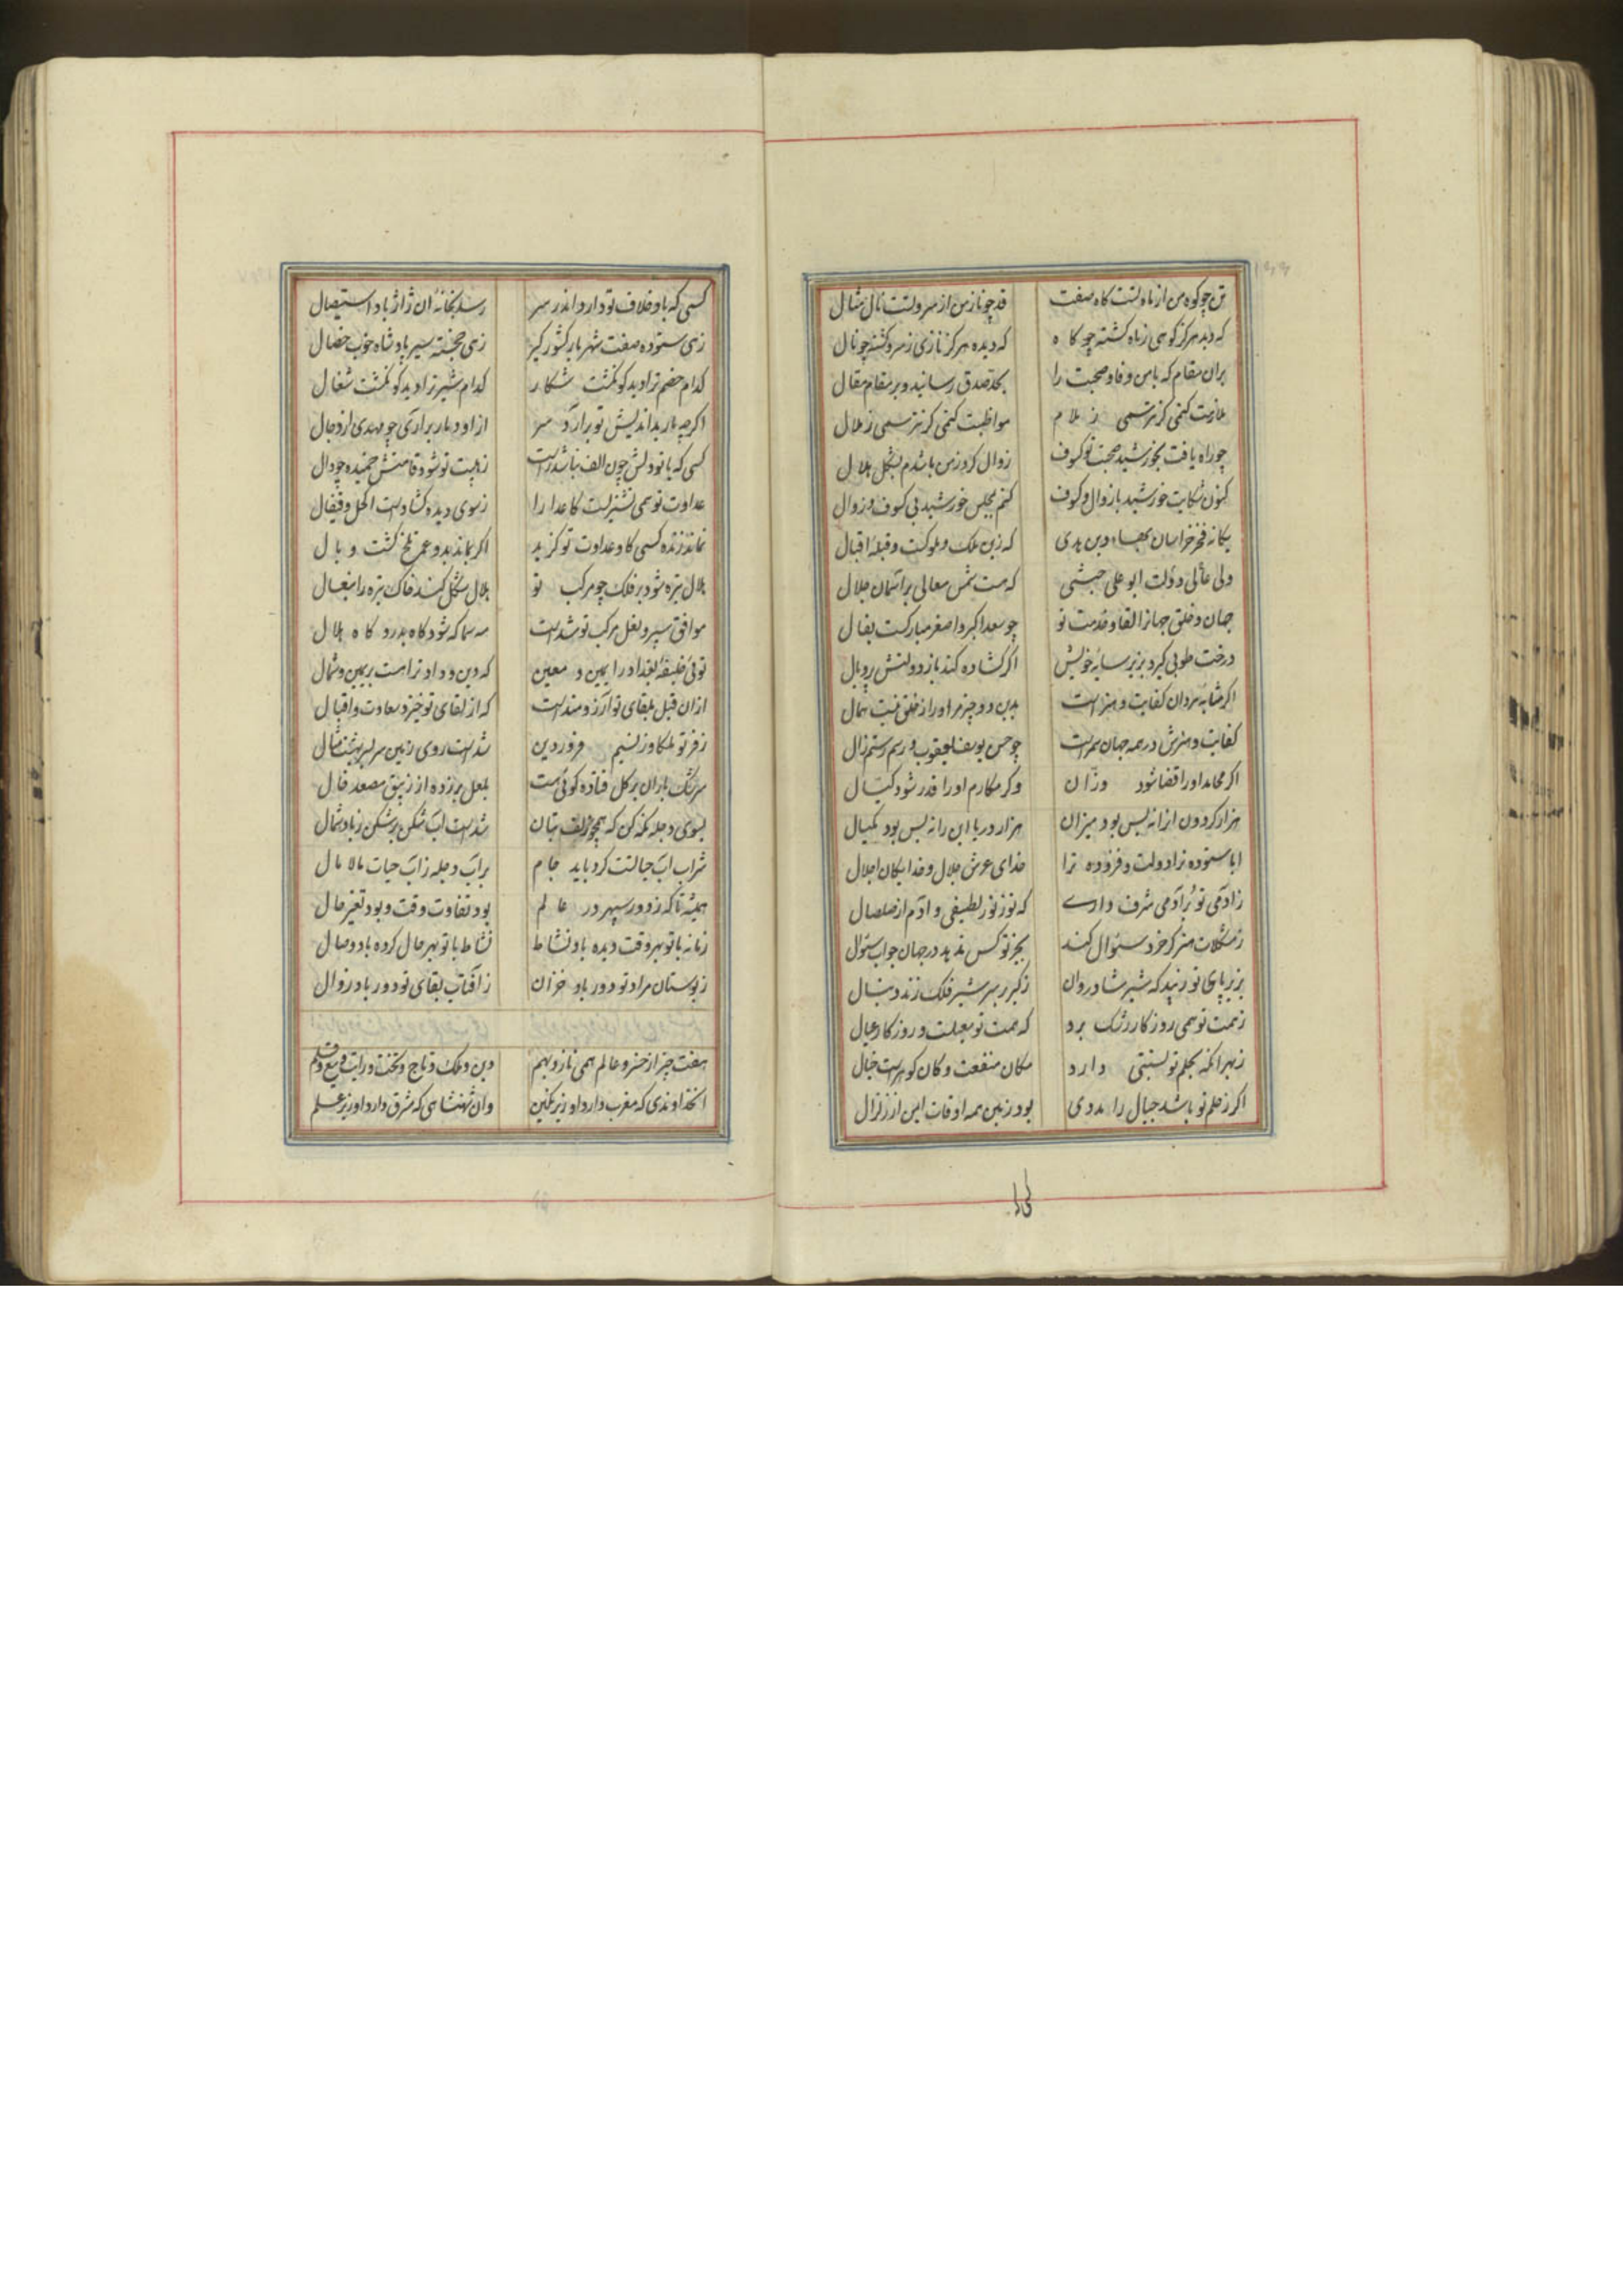 تن چو کوه من از ماه تست کاه صفت قد چو ناز من از سرو تست نال مثال
که دید هرگز کوهی ز ماه کشته چو کاه که دیده هرگز نازی ز سرو کشته چو نال
بران مقام که با من وفا و صحبت را بحد صدق رسانید و بر مقام مقال
ملازمت کنمی کر نترسمی ز ملام مواظبت کنمی کر نترسمی ز ملال
چو راه یافت بخورشید صحبت تو کسوف زوال کرد ز من تا شدم بشکل هلال
کنون شکایت خورشید با زوال و کسوف کنم بمجلس خورشید بی کسوف و زوال
یکانه فخر خراسان بهاء دین هدی که زین ملک و ملوکست و قبله اقبال
ولی عالی دولت ابو علی حبشی که هست شمس معالی بر آسمان جلال
جهان و خلق جهانرا لقا و خدمت تو چو سعد اکبر و اصغر مبارکست بفال
درخت طوبی کیرد بزیر سایه خویش اکر کشاده کند باز دولتش پر و بال
اکر مشابه مردان کفایت و هنر است بدین دو چیز مر او را ز خلق نیست همال
کفایت و هنرش در همه جهان سمر است چو حسن یوسف یعقوب و رسم رستم زال
اکر محامد او را قضا شود وزان وکر مکارم او را قدر شود کیال
هزار کردون انرا نه بس بود میزان هزار دریا این را نه بس بود مکیال
ایا ستوده ترا دولت و فزوده ترا خدای عرش جلال و خدایکان اجلال
ز آدمی تو بر آدمی شرف داری که تو ز نور لطیفی و آدم از صلصال
ز مشکلات هنر کر خرد سئوال کند بجز تو کس ندهد در جهان جواب سئوال
بزیر پای تو زیبد که شیر شادروان ز کبر بر سر شیر فلک زند دنبال
ز همت تو همی روزکار رشک برد که همت تو معیلست و روزکار عیال
ز بهر انکه بحلم تو نسبتی دارد مکان منفعت و کان کوهر است جبال
اکر ز حلم تو باشد جبال را مددی بود زمین همه اوقات ایمن از زلزال
کسی که باد خلاف تو دارد اندر سر رسد بخانه ان ژاژ باد استیصال
زهی ستوده صفت شهریار کشور کیر زهی خجسته سیر پادشاه خوب خصال
کدام خصم ترا دید کو نکشت شکار کدام شیر ترا دید کو نکشت شغال
اکر چه مار بد اندیش تو برآرد سر از او دمار برآری چو مهدی از دجال
کسی که با تو دلش چون الف نباشد راست ز هیبت تو شود قامتش خمیده چو دال
عداوت تو همی نشتریست کاعدا را ز سوی دیده کشاد است اکحل و قیفال
نماند زنده کسی کاو عداوت تو کزید اکر بماند بدو عمر تلخ کشت و بال
هلال تیره شود بر فلک چو مرکب تو هلال شکل کند خاک تیره را بنعال
موافق سیر و نعل مرکب تو شد است مه سما که شود کاه بدر و کاه هلال
توئی خلیفه بغداد را یمین و معین که دین و داد ترا هست بر یمین و شمال
از ان قبل بلقای تو آرزومند است که از لقای تو خیزد سعادت و اقبال
ز فر تو بلکا وز نسیم فروردین شد است روی زمین سر بسر بهشت مثال
سرشک باران بر کل فتاده کوئی هست بلعل بر زده از زیبق مصعد خال
بسوی دجله نکه کن که همچو زلف بتان شد است آب شکن بر شکن ز باد شمال
شراب آب حیاتست کرد باید جام بر آب دجله ز آب حیات مالامال
همیشه تا که ز دور سپهر در عالم بود تفاوت وقت و بود تغیر حال
زمانه با تو بهر وقت دیده باد نشاط نشاط با تو بهر حال کرده باد وصال
ز بوستان مراد تو دور باد خزان ز آفتاب بقای تو دور باد زوال
هفت چیز از خسرو عالم همی نازد بهم دین و ملک و تاج و تخت و رایت و تیغ و قلم
ان خداوندی که مغرب دارد او زیر نکین وان شهنشاهی که مشرق دارد او زیر علم